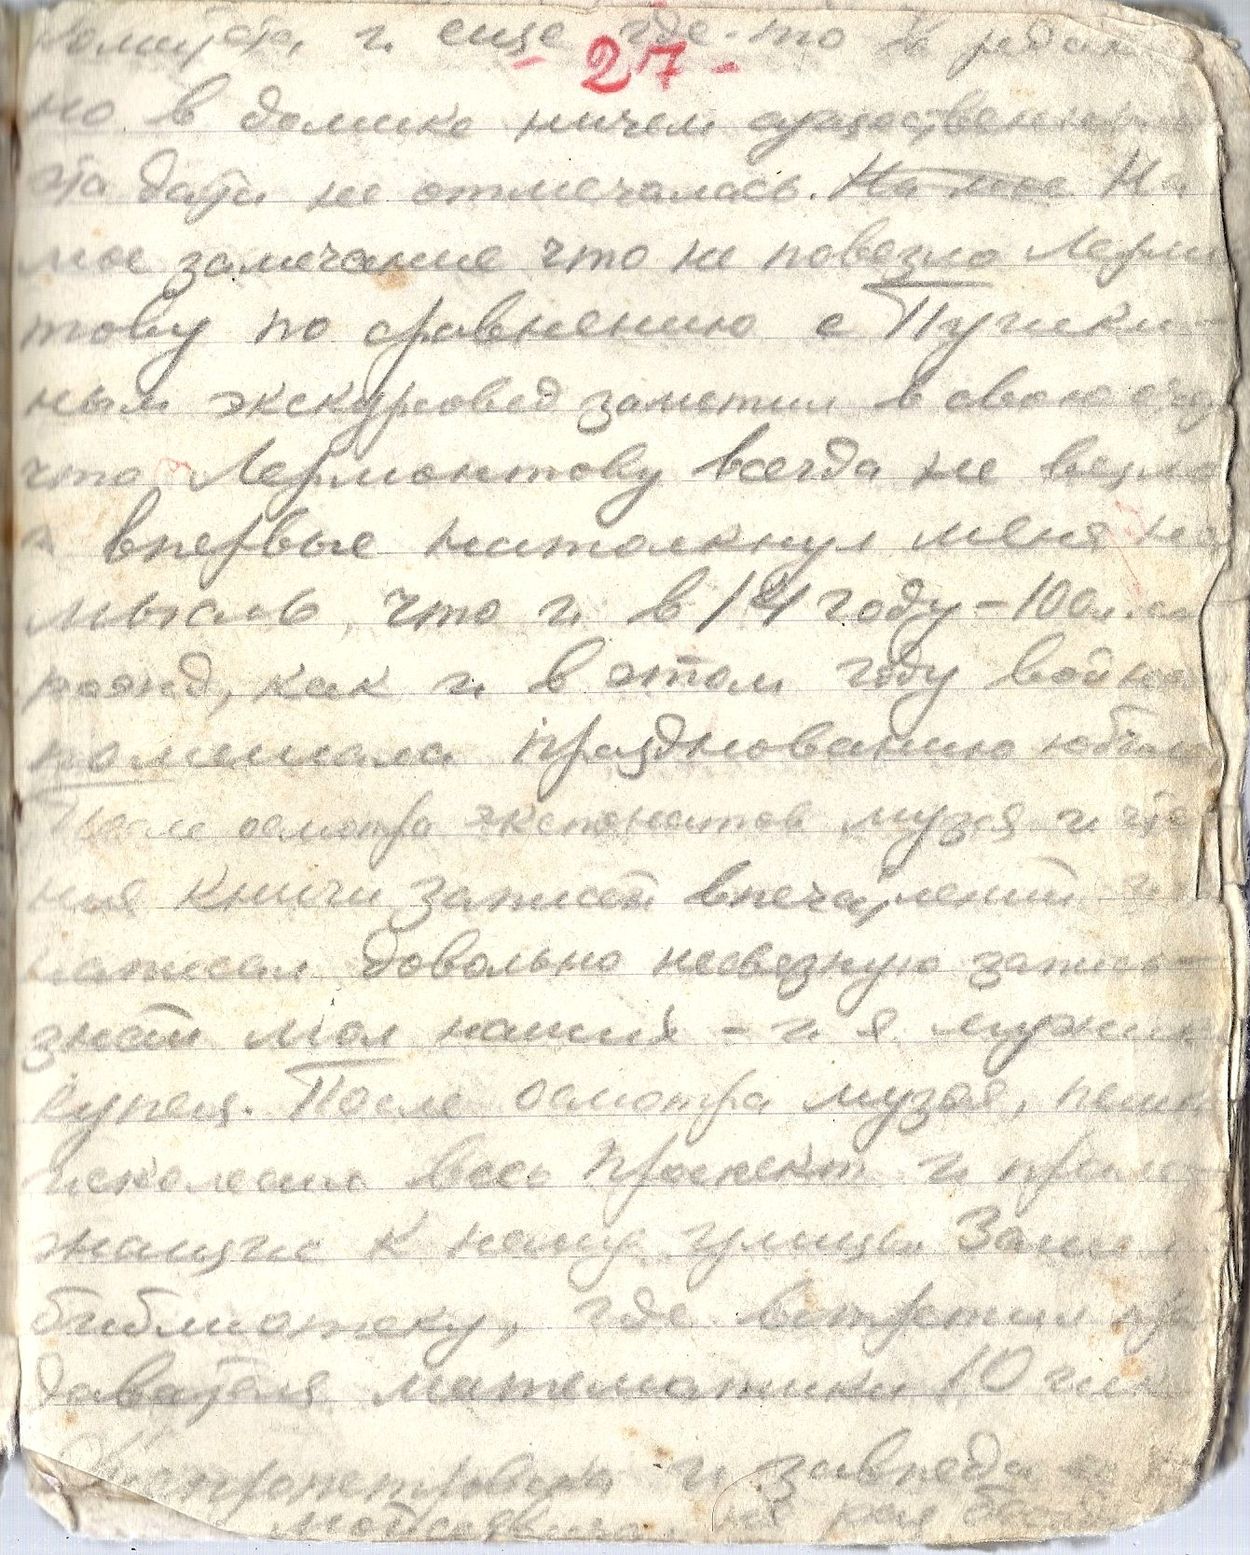 и еще где-то в
- 27 -
но в домике ничем существенным
эта дата не отмечалась. На мое На
мое замечание что не повезло Лермон
тову по сравнению с Пушки-
ным экскурсовод заметил в свою очер
что Лермонтову всегда не везло
и впервые натолкнул меня на
мысль, что и в 14 году - 100 лет
рожд, как и в этом году война
помешала празднованию юбиле
После осмотра экспонатов музея и чте
ния книги записей впечатлений и
написал довольно несвязную запись
знай мол наших - и я лыком
После осмотра музея, пешк
исколесил весь проспект и приле-
жащие к нему улицы. Зашел
библиотеку, где встретил пре
давателя математики 10
Днепропетровска и завпеда